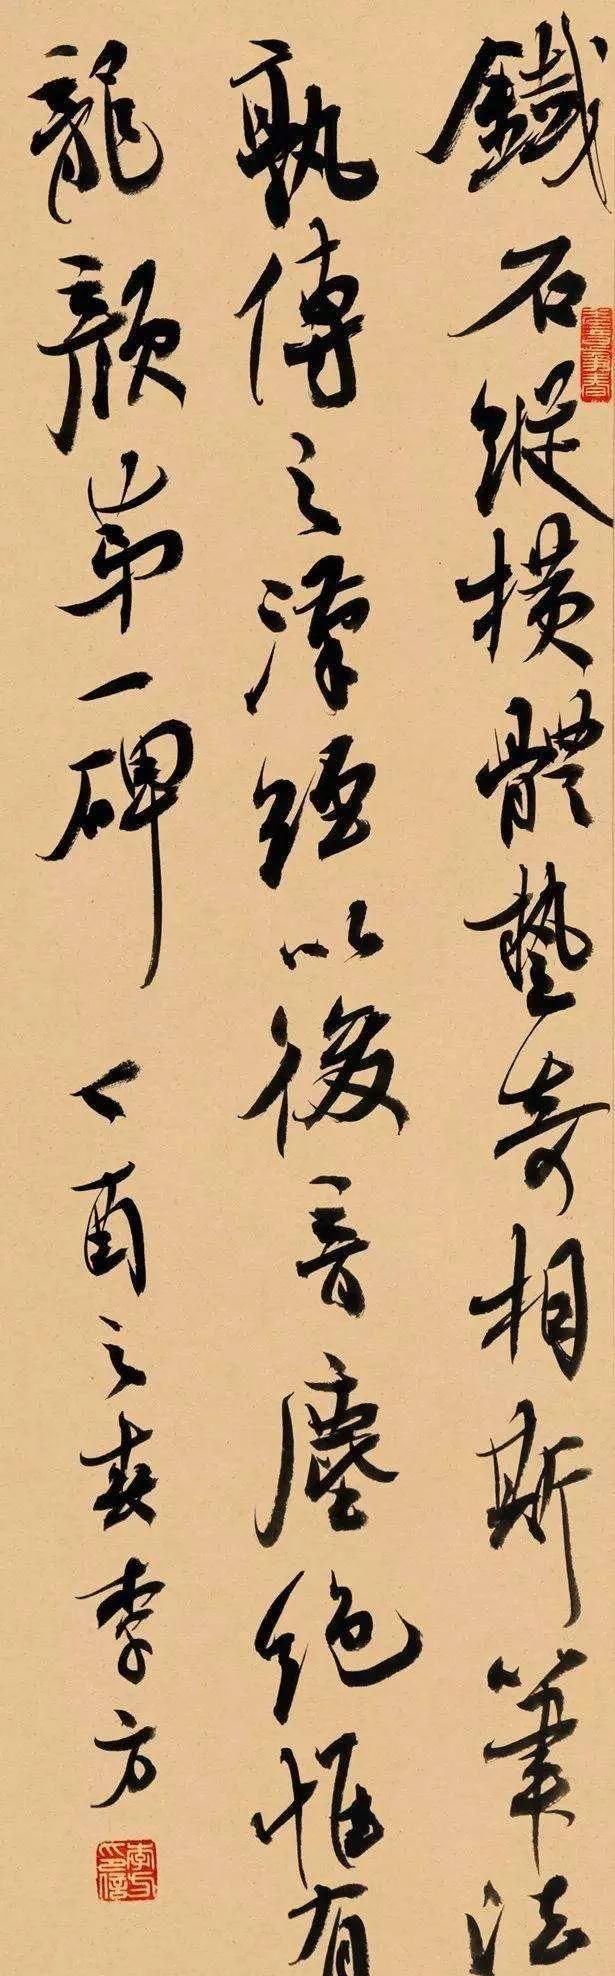 鐵石縱橫體藝奇相斯筆法
孰傳之漢經以後音塵絕惟有
龍顏第一碑 丁酉之春李方
李方印信